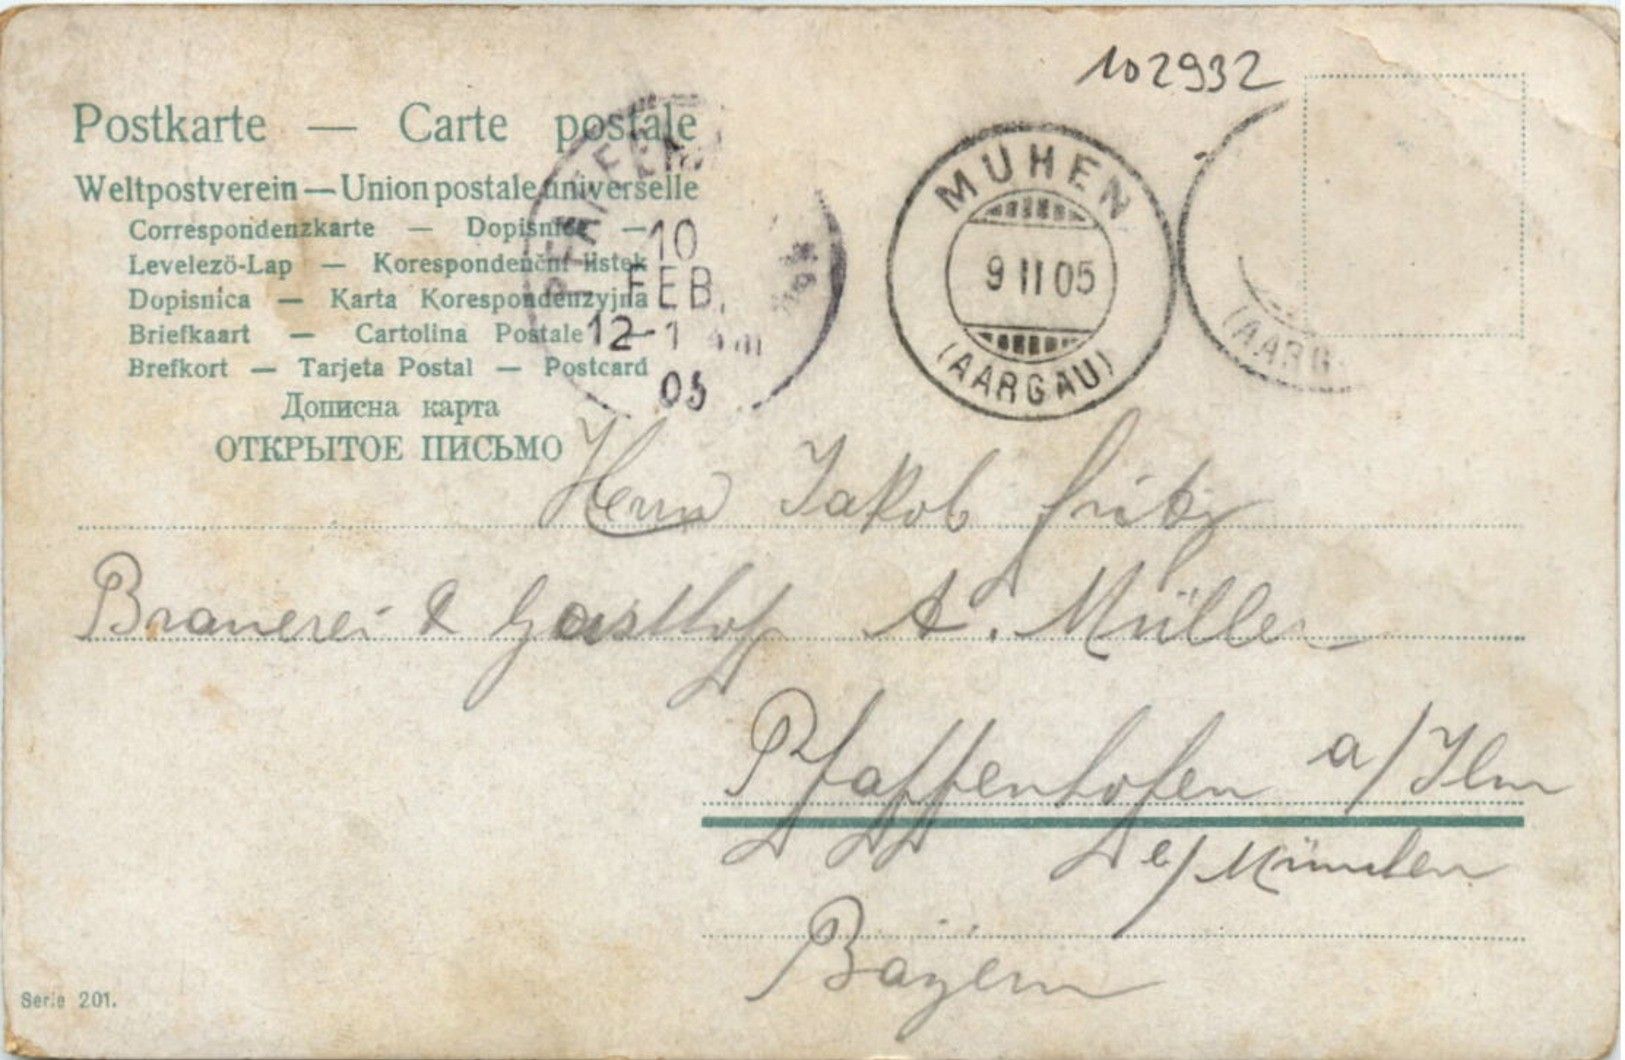 102932
Postkarte — Carte postale
Weltpostverein — Union postale universelle
Correspondenzkarte — Dopisnice —
Levelezö-Lap — Korespondenční listek
Dopisnica — Karta Korespondenzyjna
Briefkaart — Cartolina Postale —
Brefkort — Tarjeta Postal — Postcard
Дописна карта
ОТКРЫТОЕ ПИСЬМО
10
FEB.
12-1
05
MUHEN
9 II 05
(AARGAU)
(AARG
Herrn Jakob
Brauerei & Gasthof A. Müller
Pfaffenhofen a/Ilm
b/München
Bayern
Serie 201.